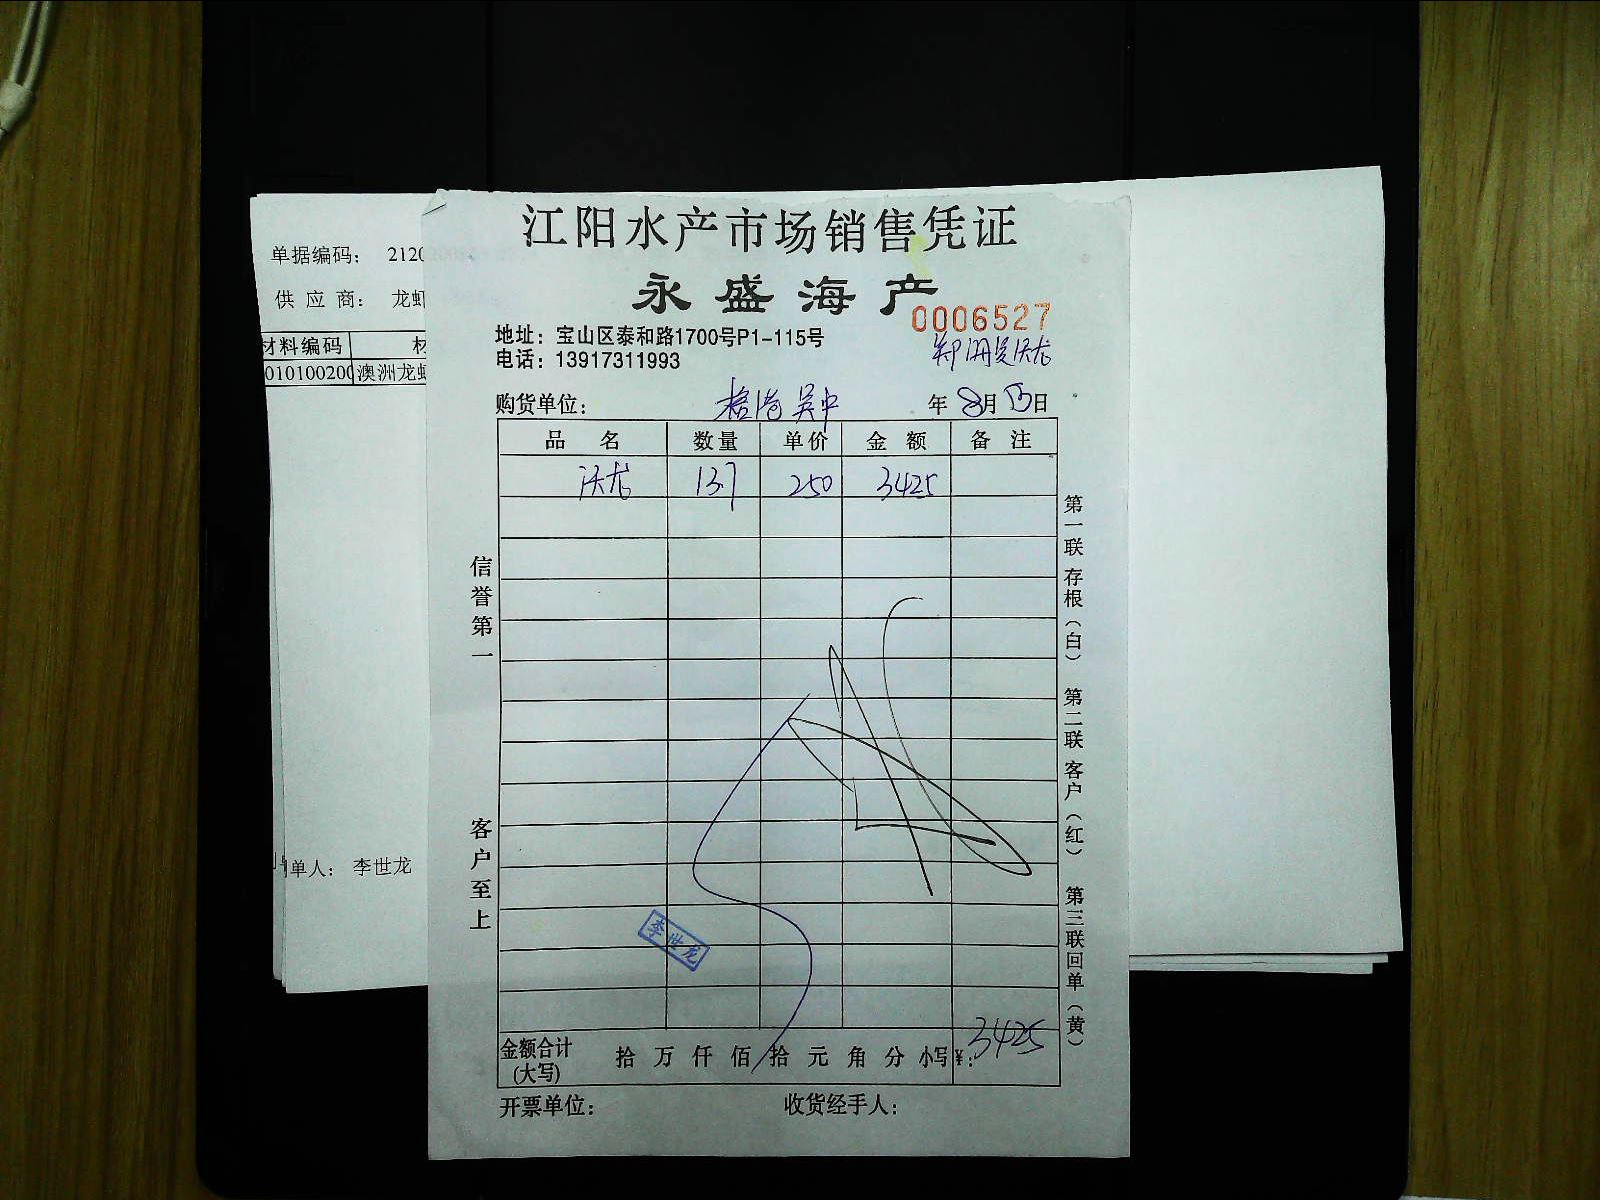 江阳水产市场销售凭证
永盛海产
0006527
地址：宝山区泰和路1700号P1-115号
电话：13917311993
购货单位： 吴中 年 8月 15日
品 名 数量 单价 金 额 备 注
沃龙 13.7 250 3425
信誉第一
客户至上
第一联 存根（白） 第二联 客户（红） 第三联 回单（黄）
李世龙
金额合计(大写) 拾 万 仟 佰 拾 元 角 分 小写¥：3425
开票单位： 收货经手人：
单据编码： 2120
供 应 商： 龙虾
材料编码 材
010100200 澳洲龙虾
单人： 李世龙